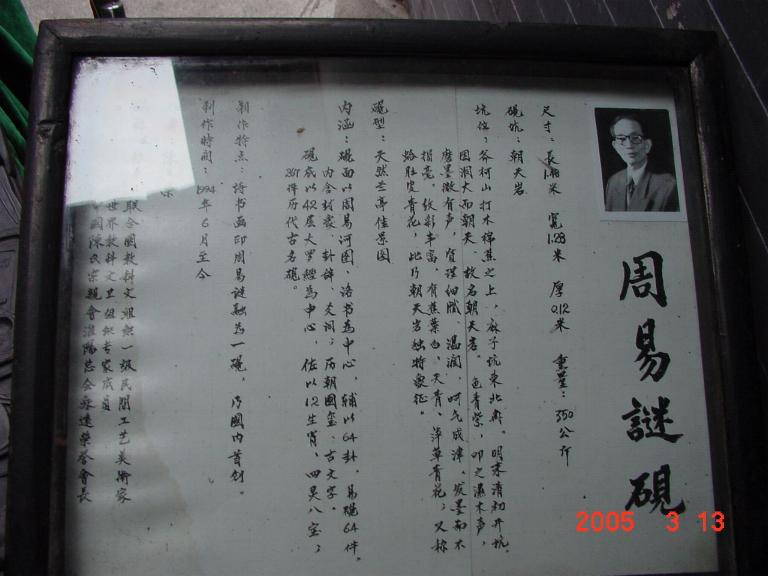 周易謎硯
尺寸：長1.88米 寬1.28米 厚0.12米 重量：350公斤
硯坑：朝天岩
坑位：谷柯山打木棉蕉之上，麻子坑東北麓。明末清初开坑，
因洞大而朝天 故名朝天岩。色青紫，叩之濕木声，
磨墨微有声，質理细膩、温润、呵气成津。发墨而不
損毫，纹彩丰富，有蕉葉白、天青、浮草青花，又称
蛤肚定青花，此乃朝天岩独特象征。
硯型：天然兰亭佳景图
内涵：硯面以周易河图、洛书为中心，辅以64卦，易硯64件，
内含封彖、卦辞、爻词；历朝國玺、古文字。
硯底以42层大罗經为中心，佐以12生肖、四灵八宝；
287择历代古名硯。
製作特点：诗书画印周易謎融为一硯，乃国内首创。
制作時間：1994年6月至今
联合國教科文組织一级民間工艺美術家
世界教科文卫组织专家成員
國陳氏宗親會淮陽总会永遠荣誉會長
2005 3 13